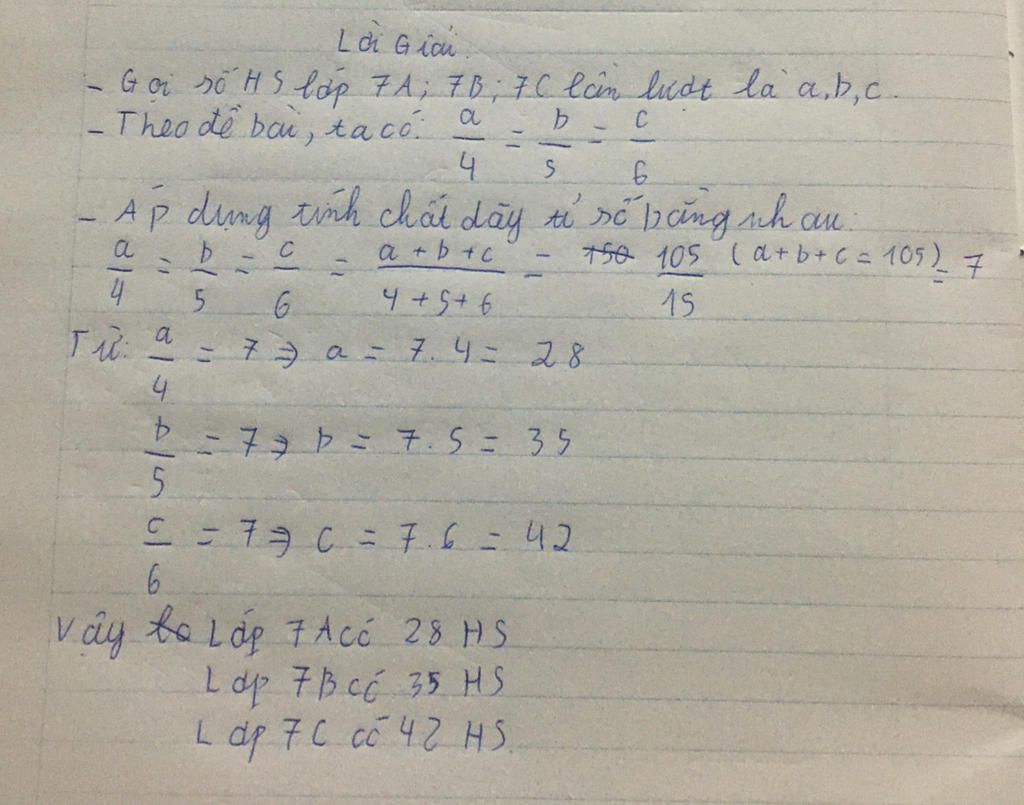 Lời Giải.
- Gọi số HS lớp 7A; 7B; 7C lần lượt là a,b,c.
- Theo đề bài, ta có: a/4 = b/5 = c/6
- Áp dụng tính chất dãy tỉ số bằng nhau:
a/4 = b/5 = c/6 = (a+b+c)/(4+5+6) = 105/15 (a+b+c = 105) = 7
Từ: a/4 = 7 => a = 7.4 = 28
b/5 = 7 => b = 7.5 = 35
c/6 = 7 => c = 7.6 = 42
Vậy Lớp 7A có 28 HS
Lớp 7B có 35 HS
Lớp 7C có 42 HS.